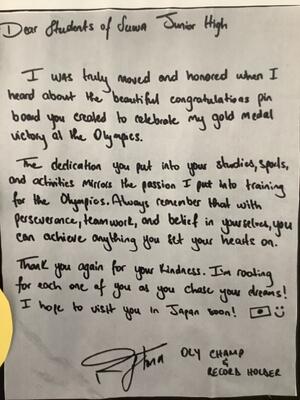 Dear Students of Suwa Junior High
I was truly moved and honored when I
heard about the beautiful congratulations pin
board you created to celebrate my gold medal
victory at the Olympics.
The dedication you put into your studies, sports,
and activities mirrors the passion I put into training
for the Olympics. Always remember that with
perseverance, teamwork, and belief in yourselves, you
can achieve anything you set your hearts on.
Thank you again for your kindness. I'm rooting
for each one of you as you chase your dreams!
I hope to visit you in Japan soon!
OLY CHAMP
&
RECORD HOLDER